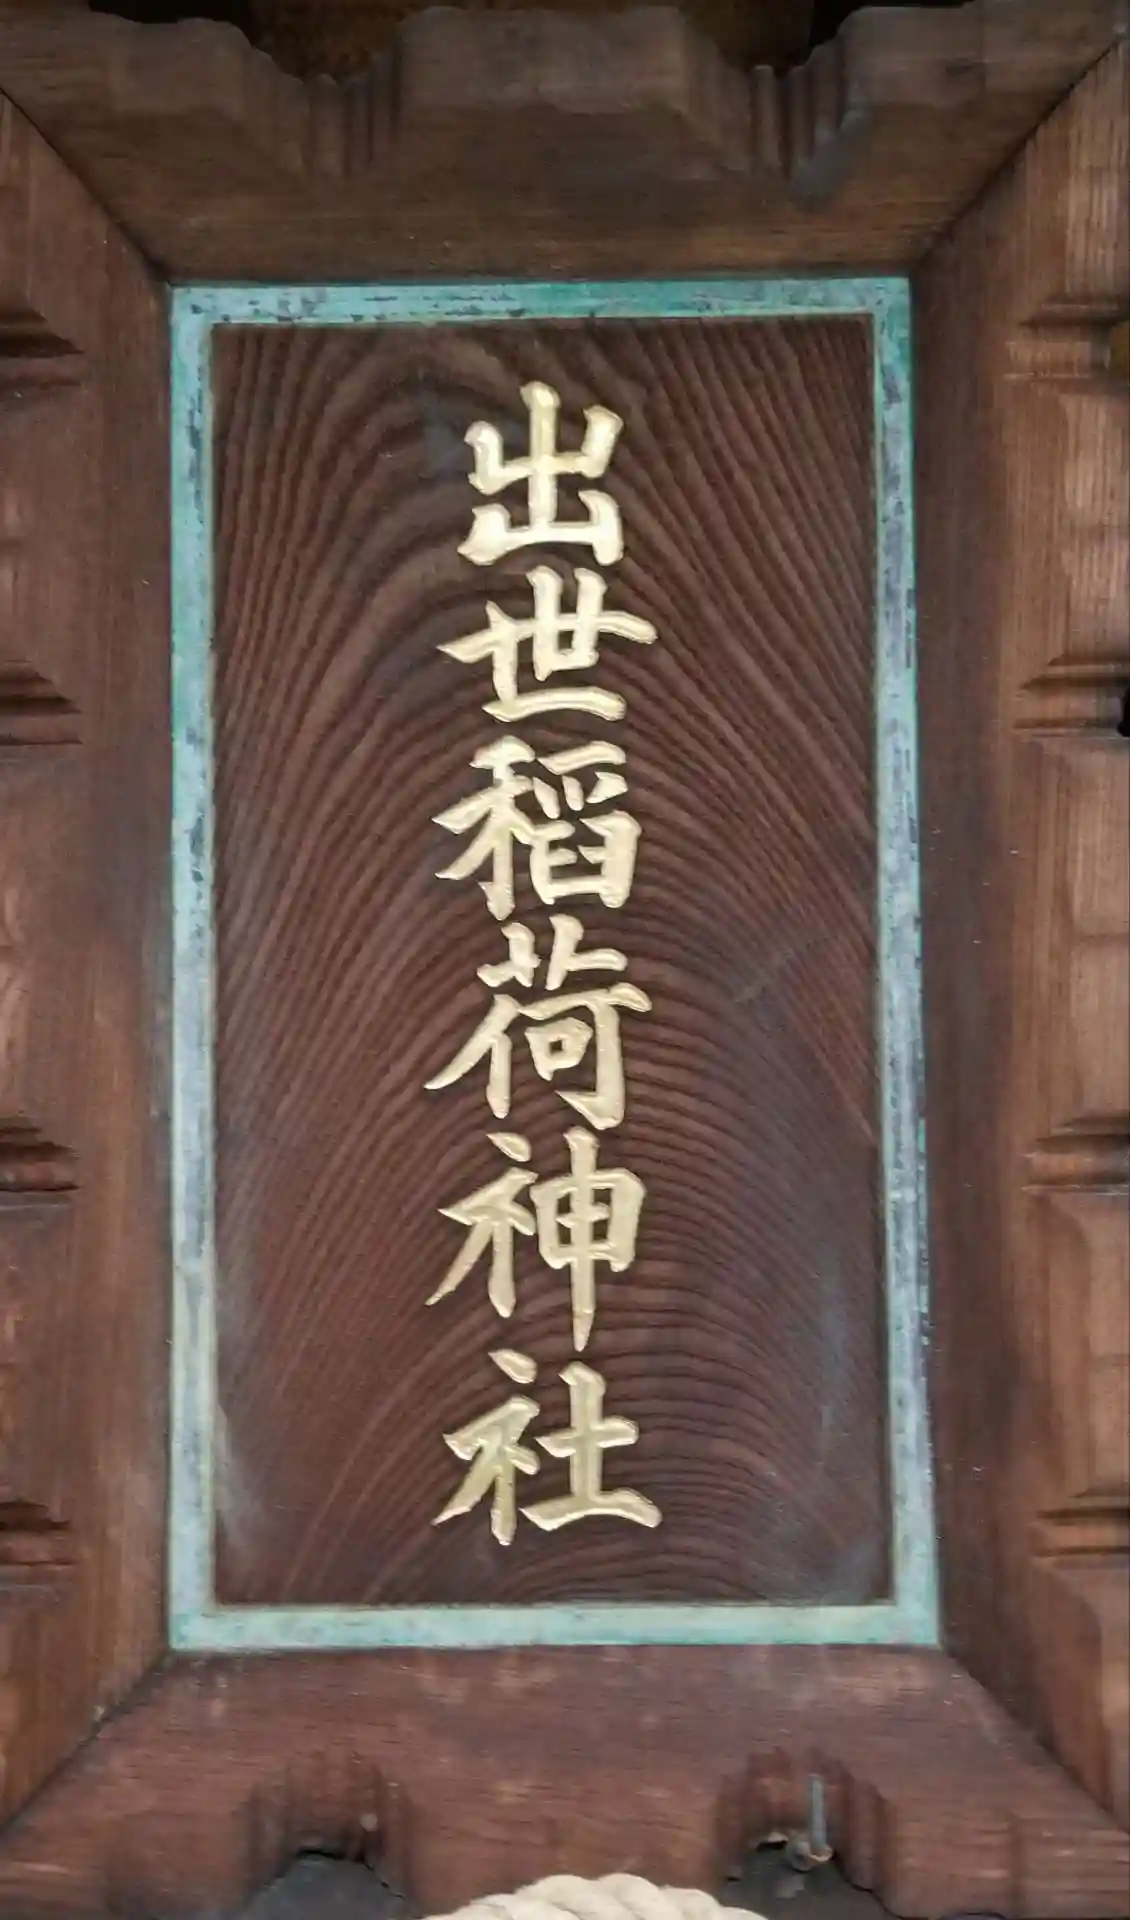 出世稻荷神社